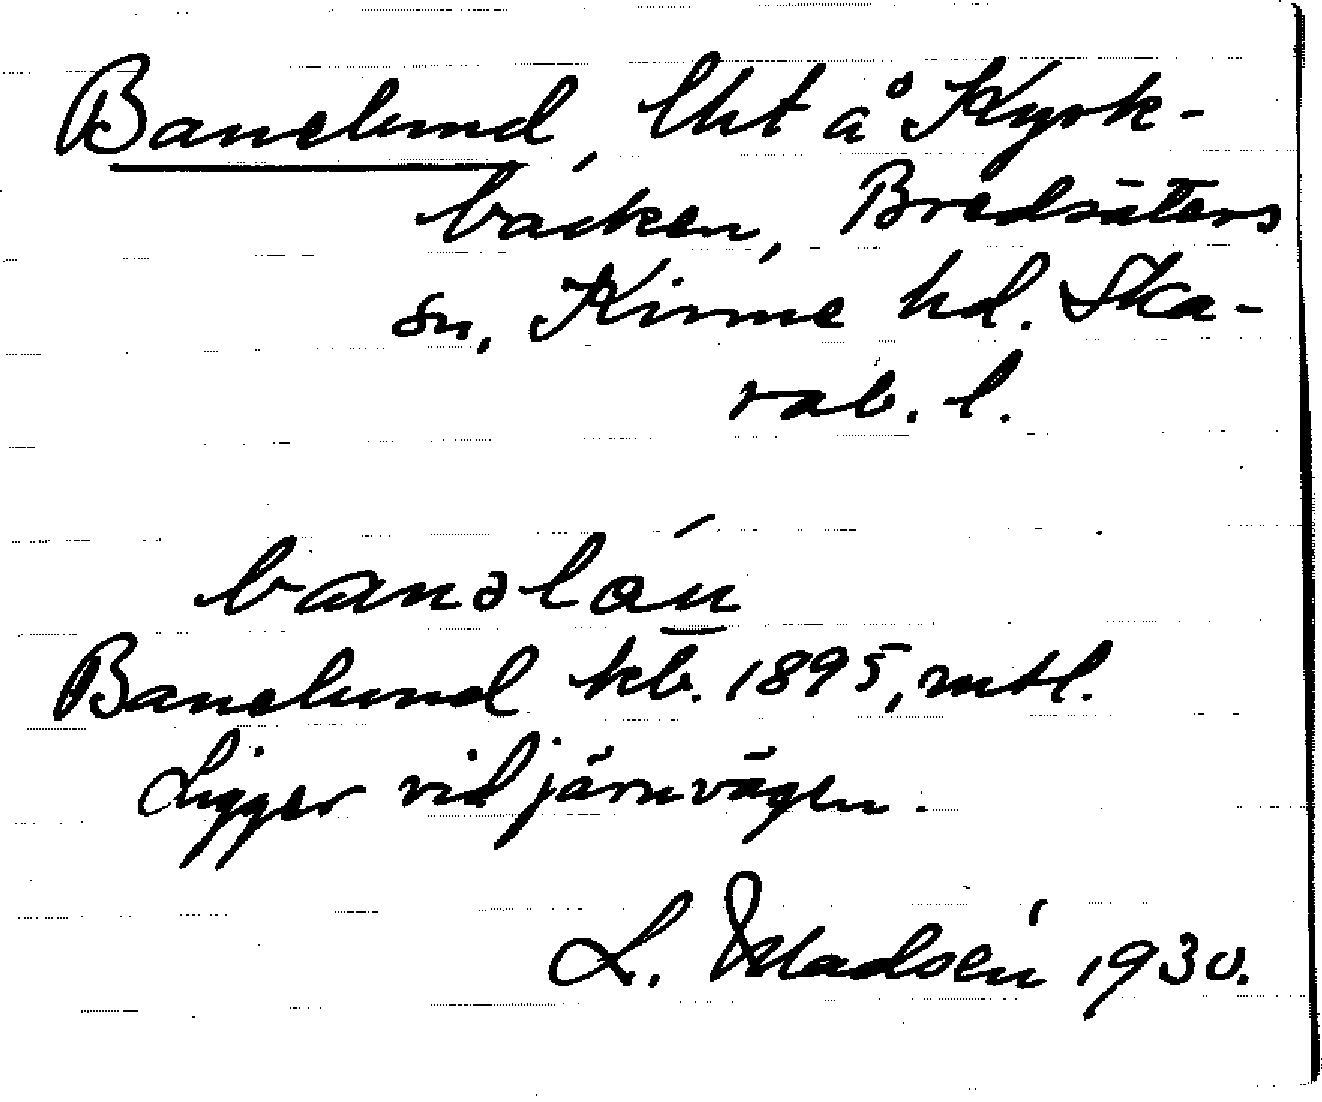 Banelund, lht å Kyrk-
backen, Bredsäters
sn, Kinne hd. Ska-
rab. l.
banəlán
Banelund kb. 1895, mtl.
Ligger vid järnvägen.
L. Madsén 1930.